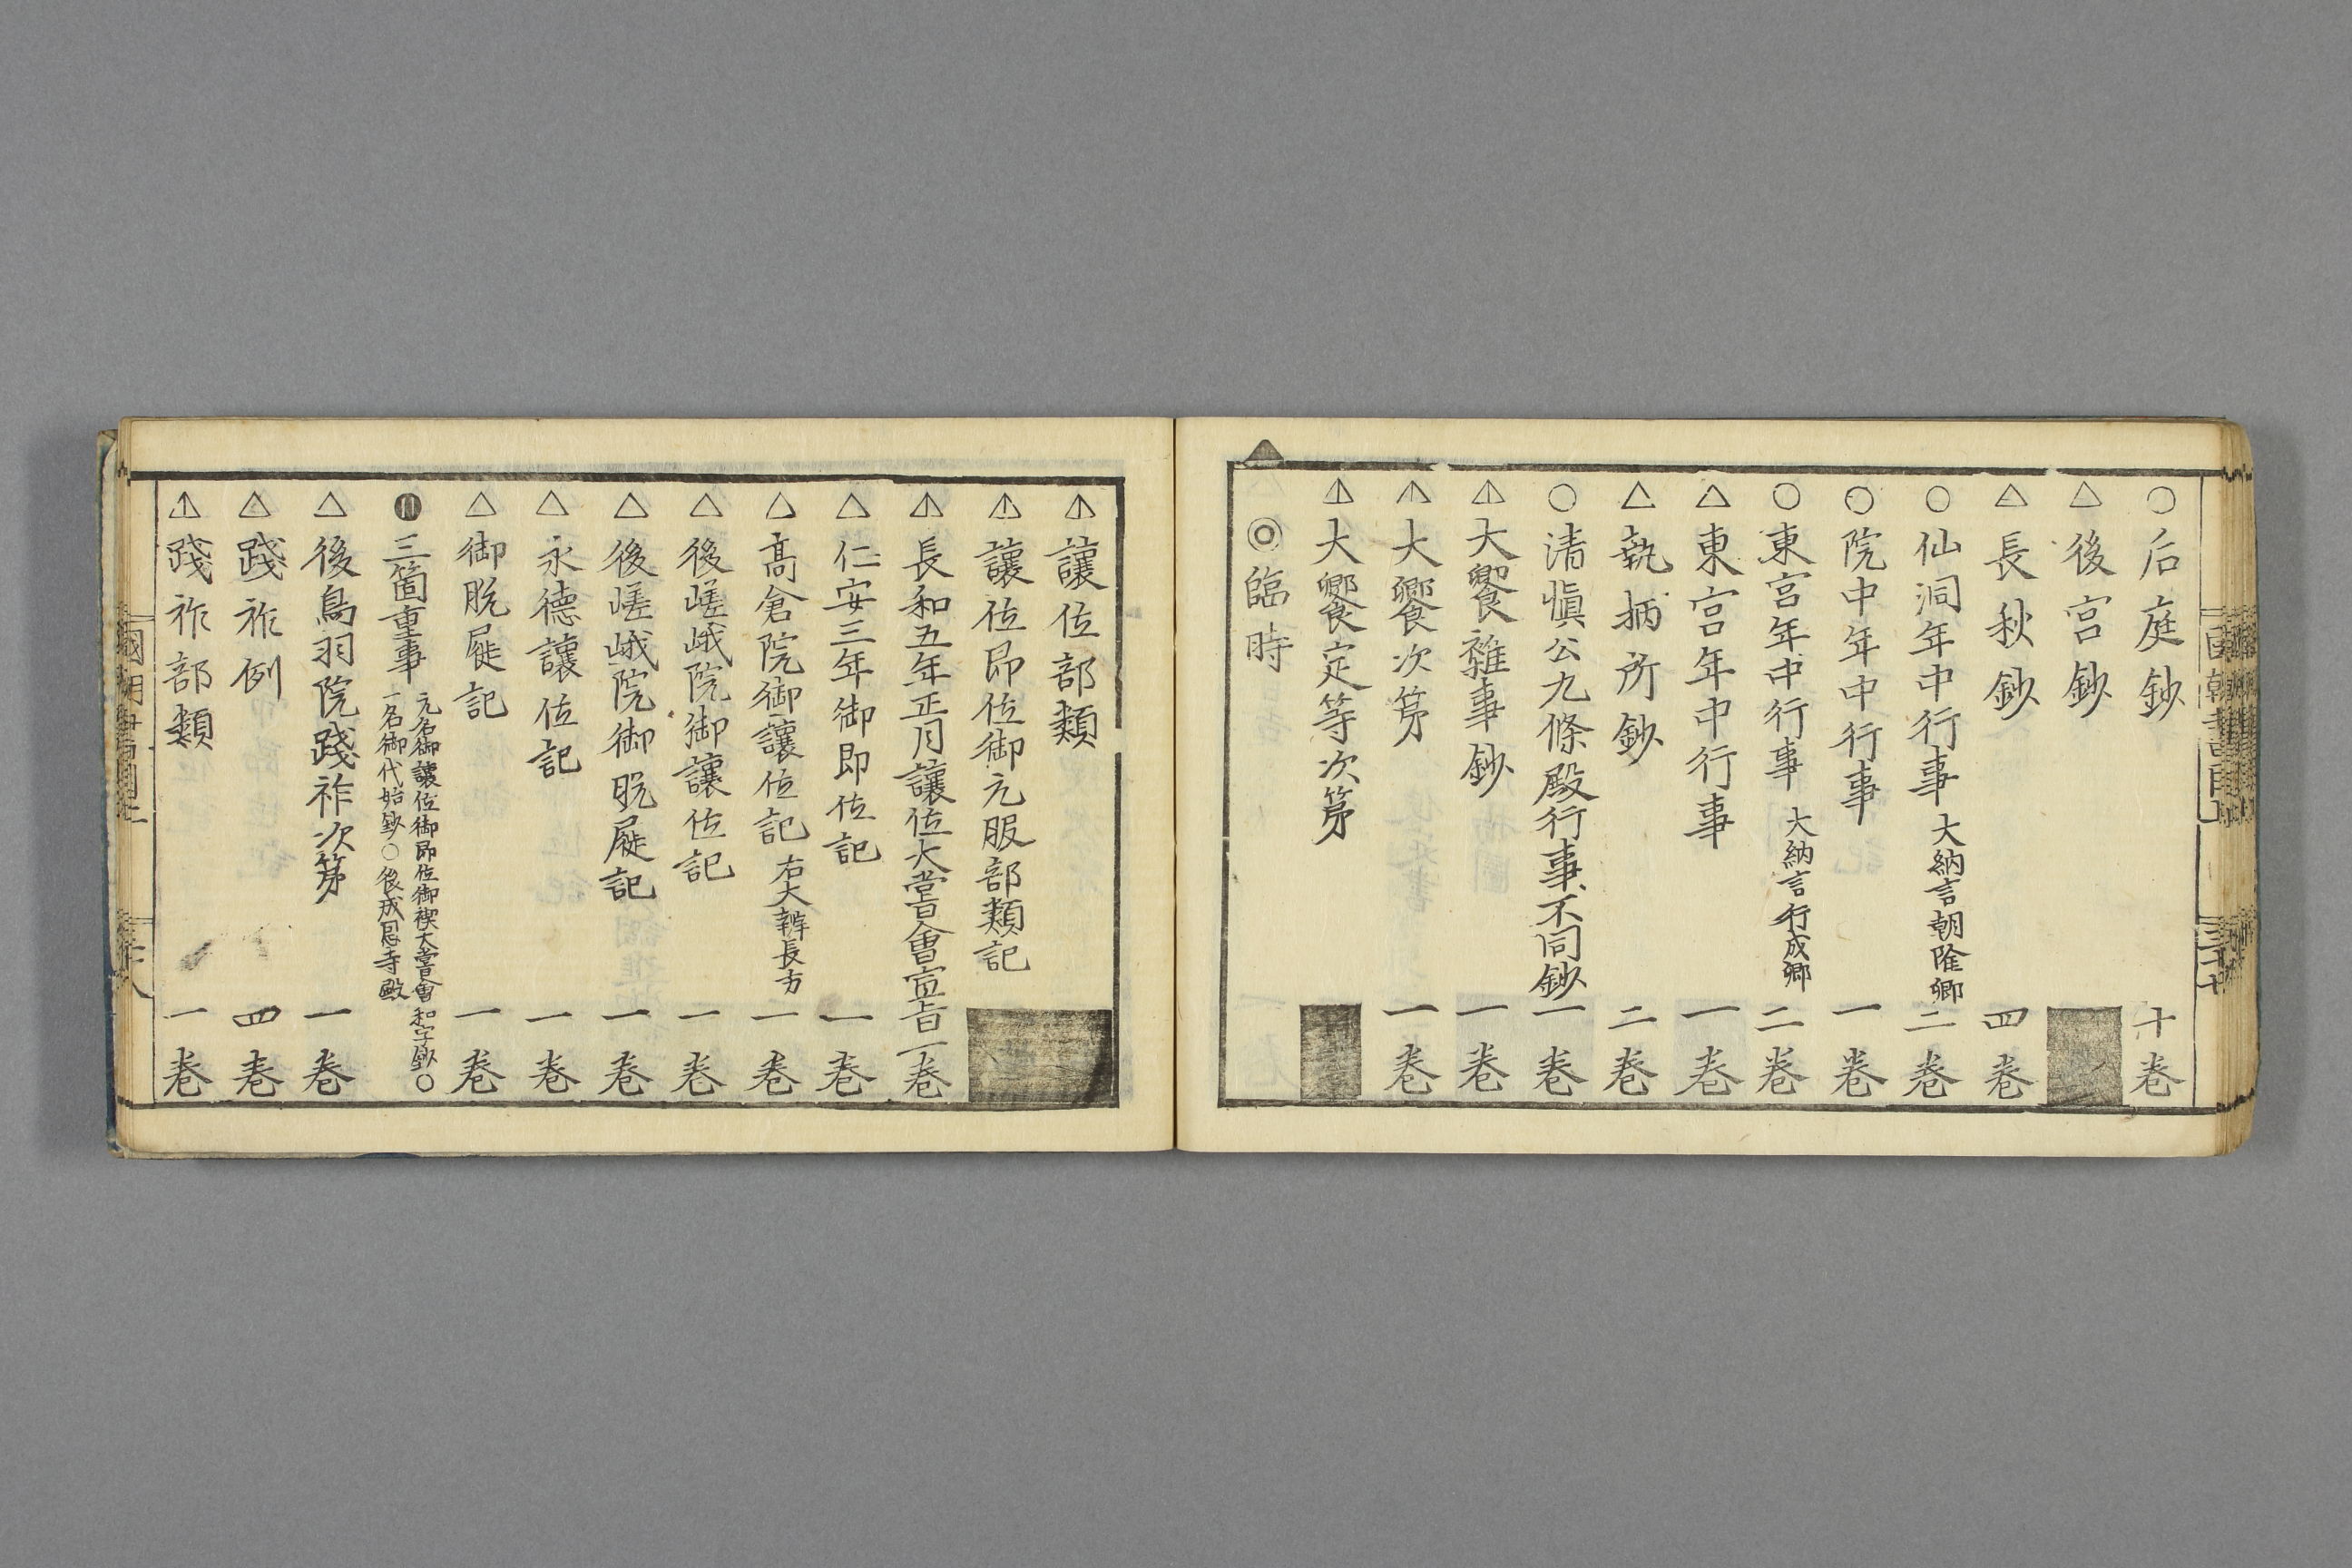 ○后庭鈔 十卷
△後宮鈔
△長秋鈔 四卷
○仙洞年中行事 大納言朝隆卿 二卷
○院中年中行事 一卷
○東宮年中行事 大納言行成卿 二卷
△東宮年中行事 一卷
△執柄所鈔 二卷
○清愼公九條殿行事不同鈔 一卷
△大饗雜事鈔 一卷
△大饗次第 一卷
△大饗定等次第
◎臨時
△讓位部類
△讓位即位御元服部類記
△長和五年正月讓位大嘗會宣旨 一卷
△仁安三年御即位記 一卷
△高倉院御讓位記 右大辨長方 一卷
△後嵯峨院御讓位記 一卷
△後嵯峨院御脱屣記 一卷
△永德讓位記 一卷
△御脱屣記 一卷
三箇重事 元名御讓位御即位御禊大嘗會和字鈔○
一名御代始鈔○後成恩寺殿
△後鳥羽院踐祚次第 一卷
△踐祚例 四卷
△踐祚部類 一卷